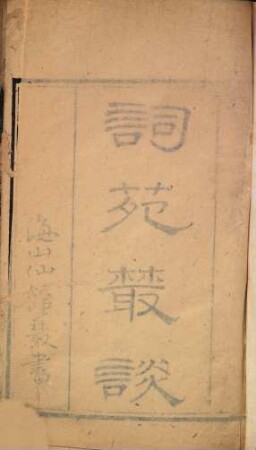 詞苑叢談
海山仙館叢書